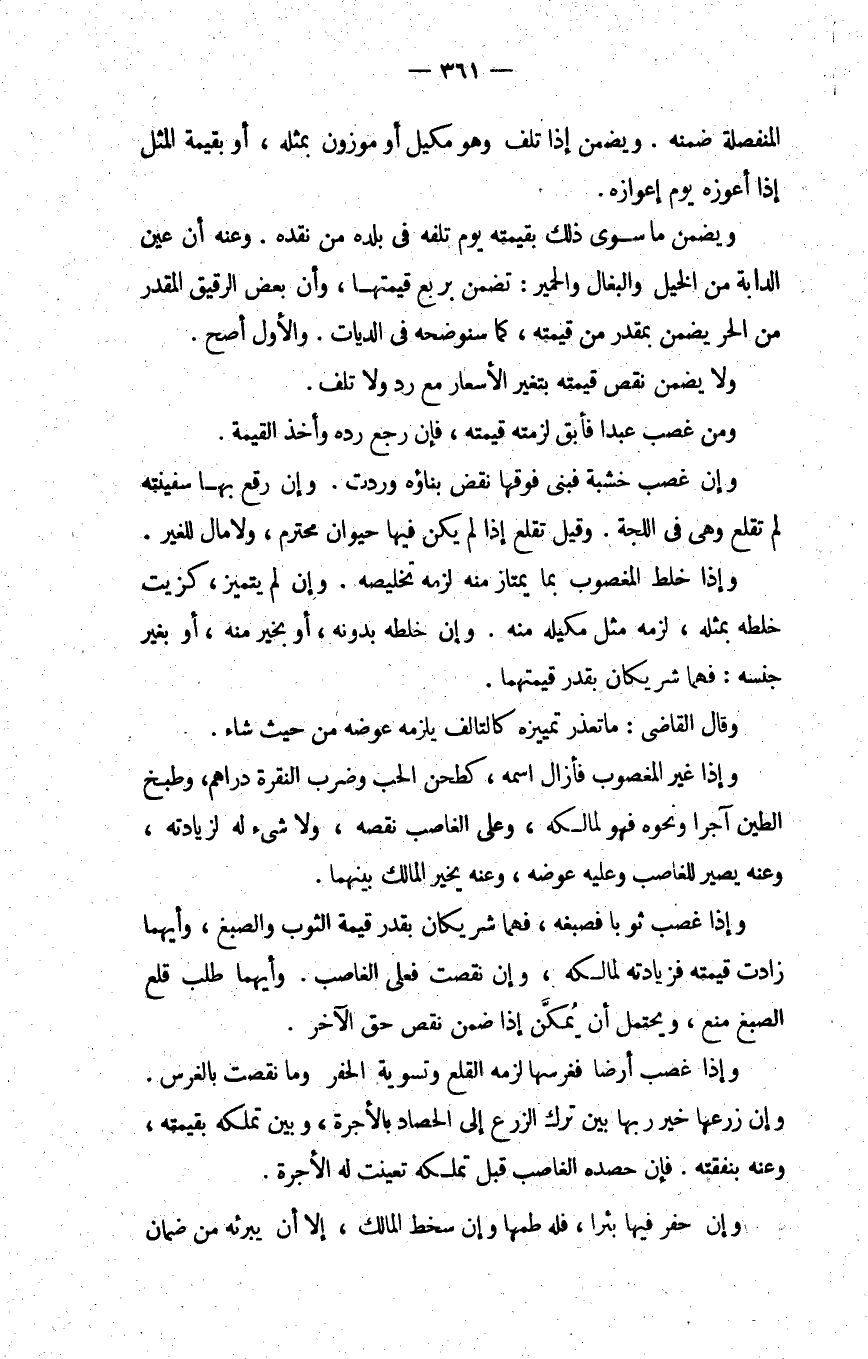 — ٣٦١ —
المنفصلة ضمنه . ويضمن إذا تلف وهو مكيل أو موزون بمثله ، أو بقيمة المثل
إذا أعوزه يوم إعوازه .
ويضمن ما سوى ذلك بقيمته يوم تلفه فى بلده من نقده . وعنه أن عين
الدابة من الخيل والبغال والحمير : تضمن بربع قيمتها ، وأن بعض الرقيق المقدر
من الحر يضمن بمقدر من قيمته ، كما سنوضحه فى الديات . والأول أصح .
ولا يضمن نقص قيمته بتغير الأسعار مع رد ولا تلف .
ومن غصب عبدا فأبق لزمته قيمته ، فإن رجع رده وأخذ القيمة .
وإن غصب خشبة فبنى فوقها نقض بناؤه وردت . وإن رقع بها سفينته
لم تقلع وهى فى اللجة . وقيل تقلع إذا لم يكن فيها حيوان محترم ، ولا مال للغير .
وإذا خلط المغصوب بما يمتاز منه لزمه تخليصه . وإن لم يتميز ، كزيت
خلطه بمثله ، لزمه مثل مكيله منه . وإن خلطه بدونه ، أو بخير منه ، أو بغير
جنسه : فهما شريكان بقدر قيمتهما .
وقال القاضى : ما تعذر تمييزه كالتالف يلزمه عوضه من حيث شاء .
وإذا غير المغصوب فأزال اسمه ، كطحن الحب وضرب النقرة دراهم، وطبخ
الطين آجرا ونحوه فهو لمالكه ، وعلى الغاصب نقصه ، ولا شىء له لزيادته ،
وعنه يصير للغاصب وعليه عوضه ، وعنه يخير المالك بينهما .
وإذا غصب ثوبا فصبغه ، فهما شريكان بقدر قيمة الثوب والصبغ ، وأيهما
زادت قيمته فزيادته لمالكه ، وإن نقصت فعلى الغاصب . وأيهما طلب قلع
الصبغ منع ، ويحتمل أن يُمكَّن إذا ضمن نقص حق الآخر .
وإذا غصب أرضا فغرسها لزمه القلع وتسوية الحفر وما نقصت بالغرس .
وإن زرعها خير ربها بين ترك الزرع إلى الحصاد بالأجرة ، وبين تملكه بقيمته ،
وعنه بنفقته . فإن حصده الغاصب قبل تملكه تعينت له الأجرة .
وإن حفر فيها بئرا ، فله طمها وإن سخط المالك ، إلا أن يبرئه من ضمان